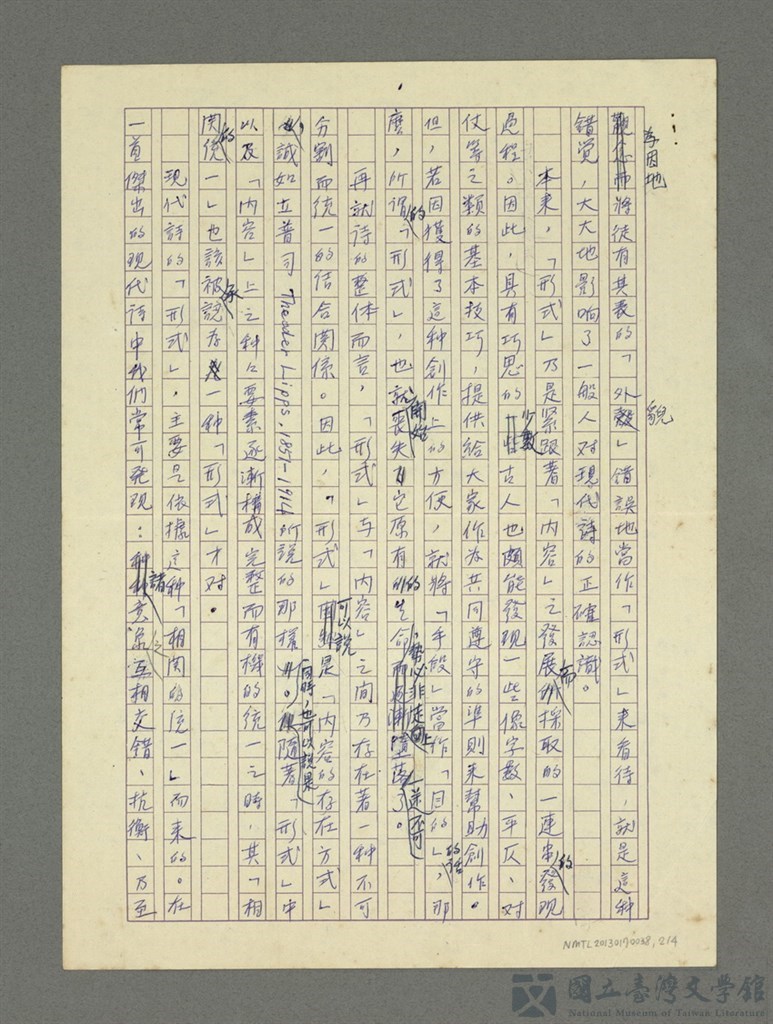 觀念而將徒有其表的「外殼」錯誤地當作「形式」来看待，就是這种
貌
錯覚，大大地影响了一般人对現代詩的正確認識。
本来，「形式」乃是紧跟著「内容」之發展而採取的一連串的發現
过程。因此，具有巧思的少數古人也頗能發現一些像字數、平仄、对
仗等之類的基本技巧，提供給大家作为共同遵守的準則来幫助創作。
但，若因獲得了這种創作上的方便，就將「手段」當作「目的」的話，那
麽，所謂的「形式」，也就開始喪失了它原有的生命
墮落了。
再就詩的整体而言，「形式」与「内容」之間乃存在著一种不可
分割而統一的结合関係。因此，「形式」可以說是「内容的存在方式」
，誠如立普司 Theoder Lipps. 1857-1914 所說的那樣。同時，也可以說果隨著「形式」中
以及「内容」上之种々要素逐漸構成完整而有機的統一之時，其「相
関的統一」也該被承認存 一种「形式」才对。
現代詩的「形式」，主要是依據這种「相関的統一」而来的。在
一首傑出的現代詩中我們常可發現：諸意象之互相交錯、抗衡、乃至
NMTL20130170038, 2/4
國立臺灣文學館
National Museum of Taiwan Literature